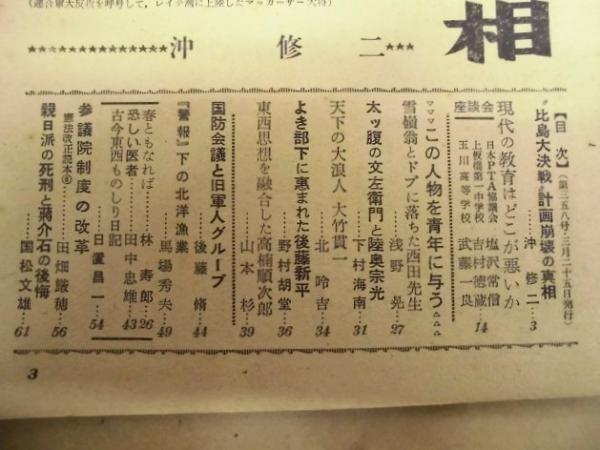 (連合軍大反攻を呼号して，レイテ湾に上陸したマッカーサー大将)
相
★★★★★★★★★★★★★沖修二★★★
【目次】(第二五八号・三月二十五日発行)
〝比島大決戦〟計画崩壊の真相
沖修二…3
現代の教育はどこが悪いか
座談会
日本PTA協議会 塩沢常信
上板橋第一中学校 吉村徳蔵…14
玉川高等学校 武藤一良
ママママこの人物を青年に与う△△△△
雪嶺翁とドブに落ちた西田先生
浅野晃…27
太ッ腹の文左衛門と陸奥宗光
下村海南…31
天下の大浪人 大竹貫一
北昤吉…34
よき部下に恵まれた後藤新平
野村胡堂…36
東西思想を融合した高楠順次郎
山本杉…39
国防会議と旧軍人グループ
後藤脩…44
『警報』下の北洋漁業
馬場秀夫…49
春ともなれば……林寿郎…26
恐しい医者……田中忠雄…43
古今東西ものしり日記
日置昌一…54
参議院制度の改革
憲法改正読本⑧…田畑厳穂…56
親日派の死刑と蔣介石の後悔
国松文雄…61
3